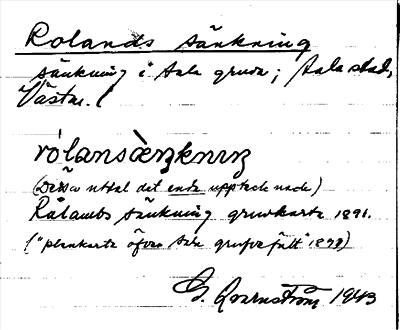 Rolands sänkning
sänkning i Sala gruva; Sala stad,
Västm.
rólansàeŋknıŋ
(Detta uttal det enda upptecknade)
Rålambs sänkning gruvkarta 1891.
("plankarta öfver Sala grufvefält" 1898)
G. Qvarnström 1943